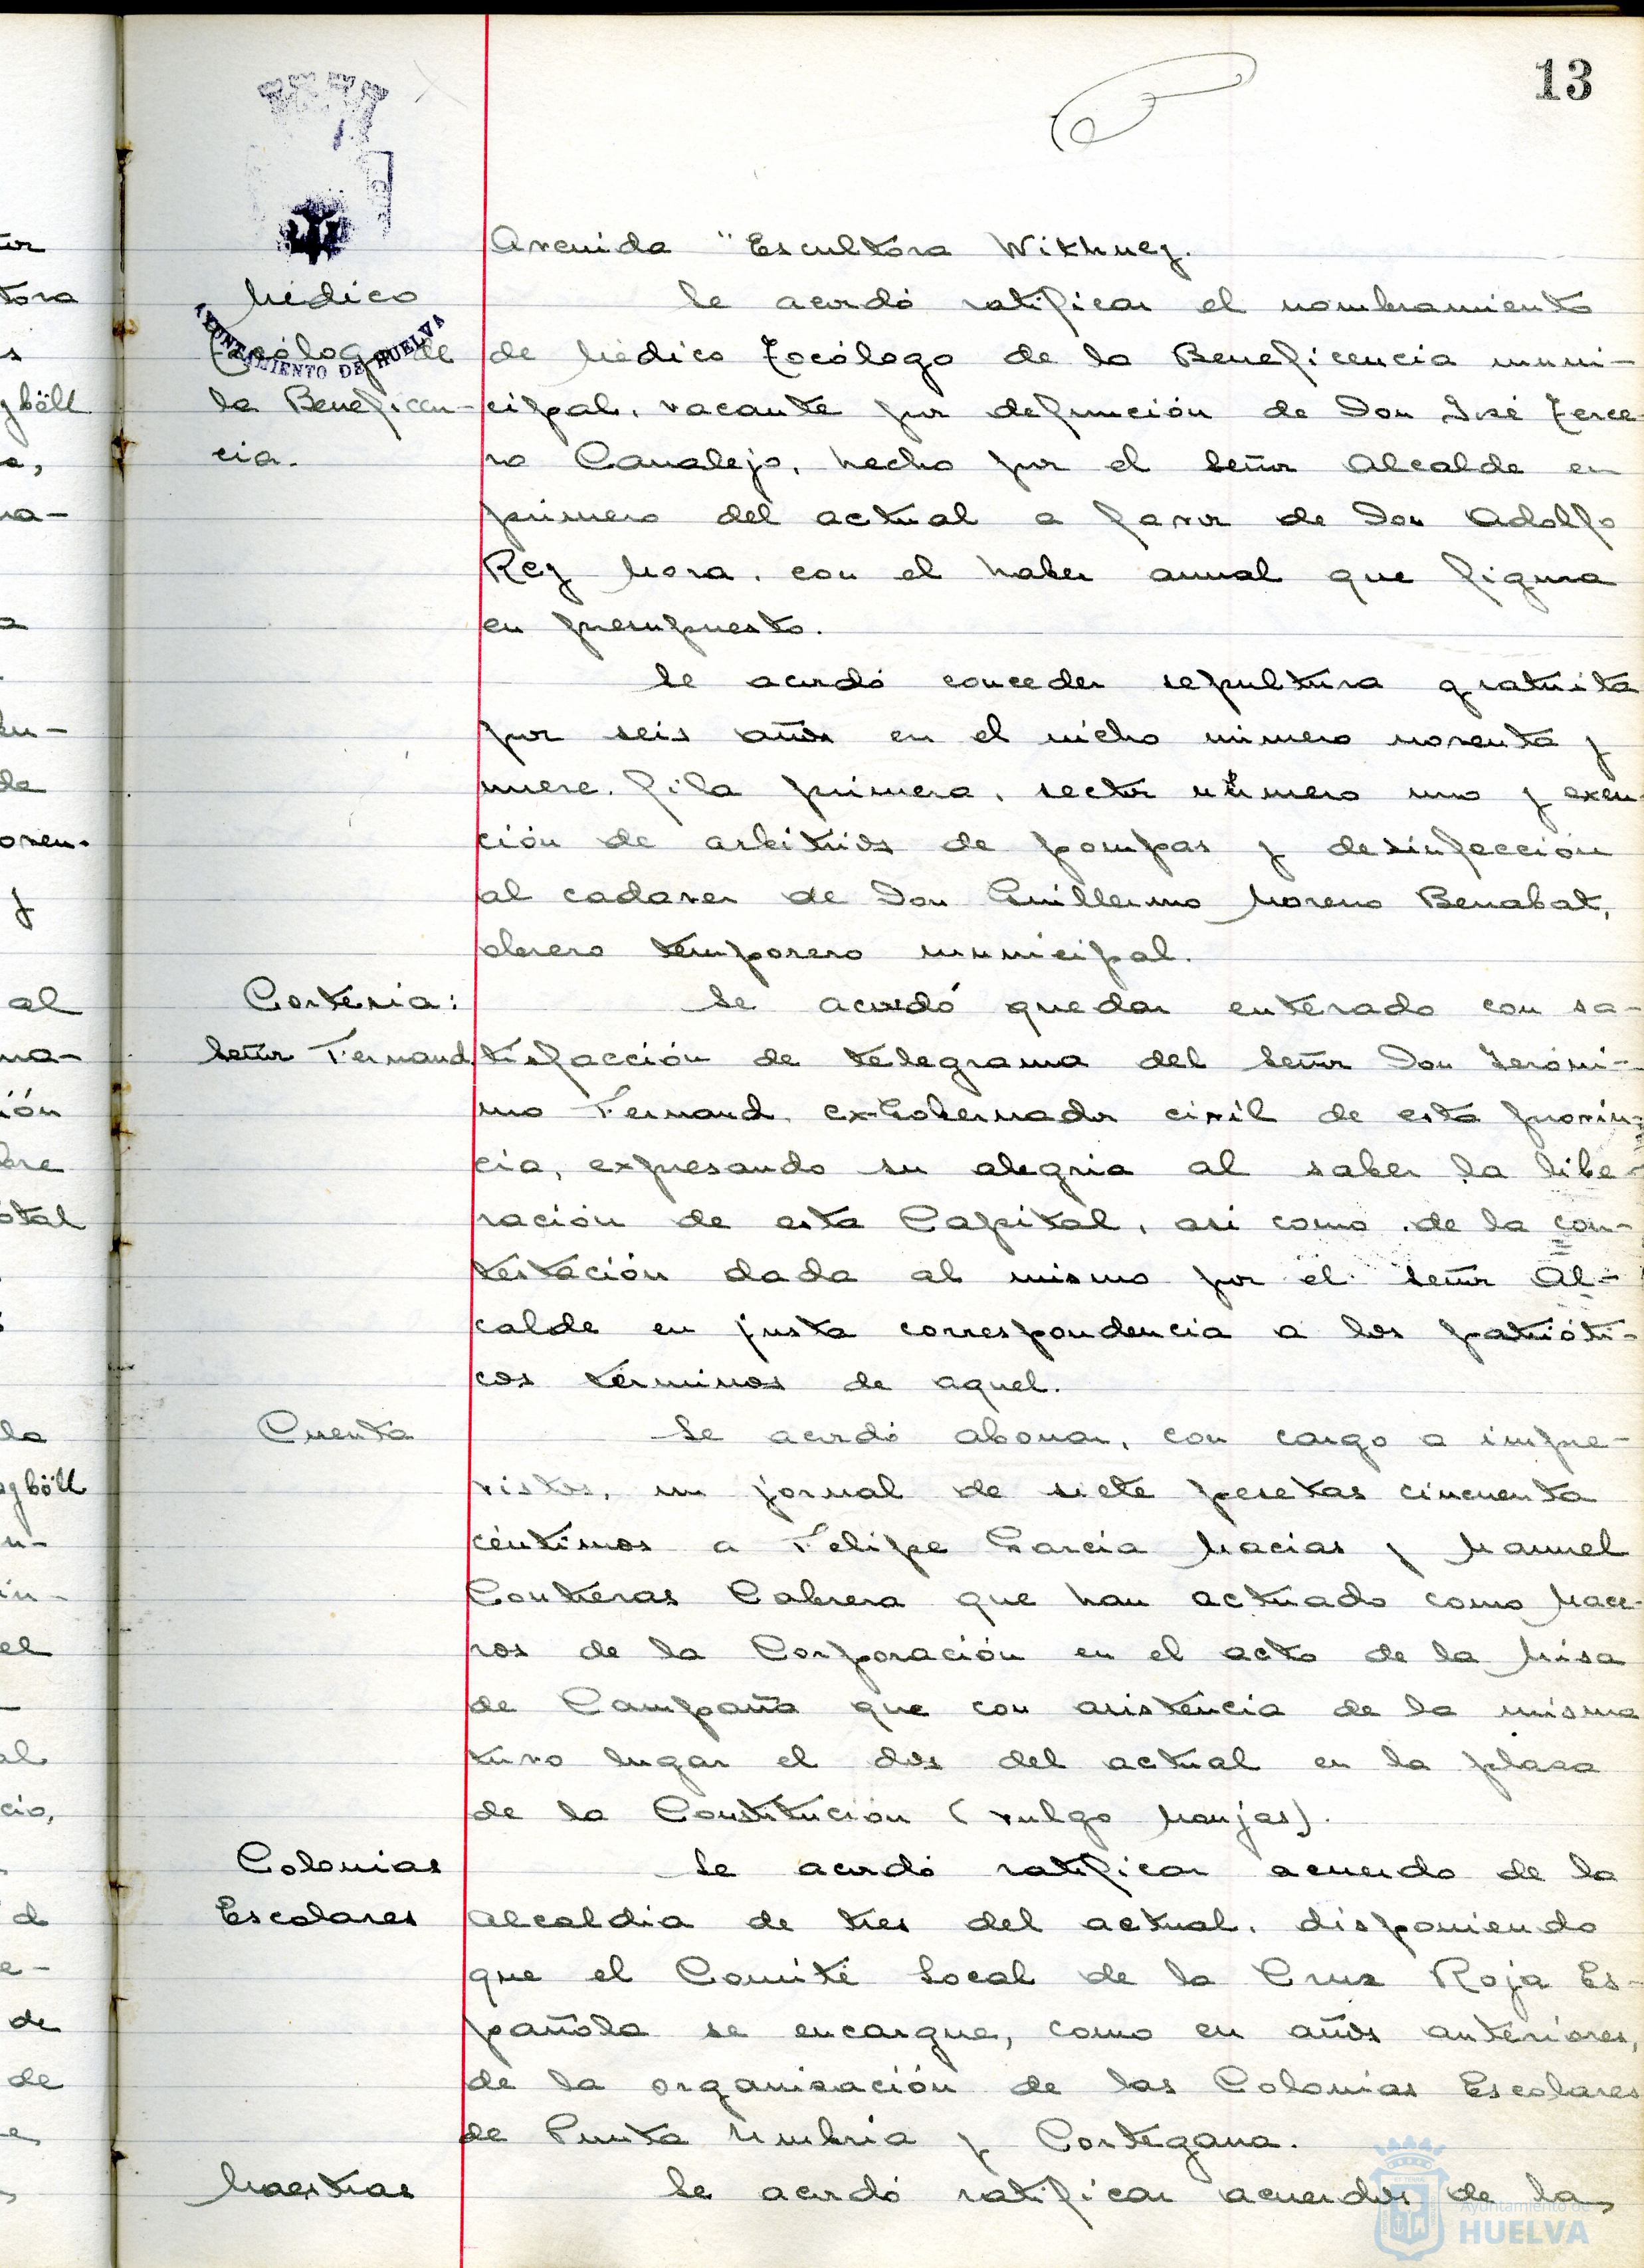 13
Avenida "Escultora Withney.
Médico
Tocólogo de
la Beneficen-
cia.
AYUNTAMIENTO DE HUELVA
Se acordó ratificar el nombramiento
de Médico Tocólogo de la Beneficencia muni-
cipal, vacante por defunción de Don José Terce-
ro Canalejo, hecho por el Señor Alcalde en
primero del actual a favor de Don Adolfo
Rey Mora, con el haber anual que figura
en presupuesto.
Se acordó conceder sepultura gratuita
por seis años en el nicho número noventa y
nueve, fila primera, sector número uno y exen-
ción de arbitrios de pompas y desinfección
al cadaver de Don Guillermo Moreno Benabat,
obrero temporero municipal.
Cortesia:
Señor Fernaud
Se acordó quedar enterado con sa-
tisfacción de telegrama del Señor Don Jeróni-
mo Fernaud, ex-Gobernador civil de esta provin-
cia, expresando su alegria al saber la libe-
ración de esta Capital, asi como de la con-
testación dada al mismo por el Señor Al-
calde en justa correspondencia a los patrióti-
cos términos de aquel.
Cuenta
Se acordó abonar, con cargo a impre-
vistos, un jornal de siete pesetas cincuenta
céntimos a Felipe Garcia Macias y Manuel
Contreras Cabrera que han actuado como Mace-
ros de la Corporación en el acto de la Misa
de Campaña que con asistencia de la misma
tuvo lugar el dos del actual en la plaza
de la Constitución (vulgo Monjas).
Colonias
Escolares
Se acordó ratificar acuerdo de la
Alcaldia de tres del actual, disponiendo
que el Comité Local de la Cruz Roja Es-
pañola se encargue, como en años anteriores,
de la organización de las Colonias Escolares
de Punta Umbria y Cortegana.
Maestras
Se acordó ratificar acuerdos de la
Ayuntamiento de
HUELVA